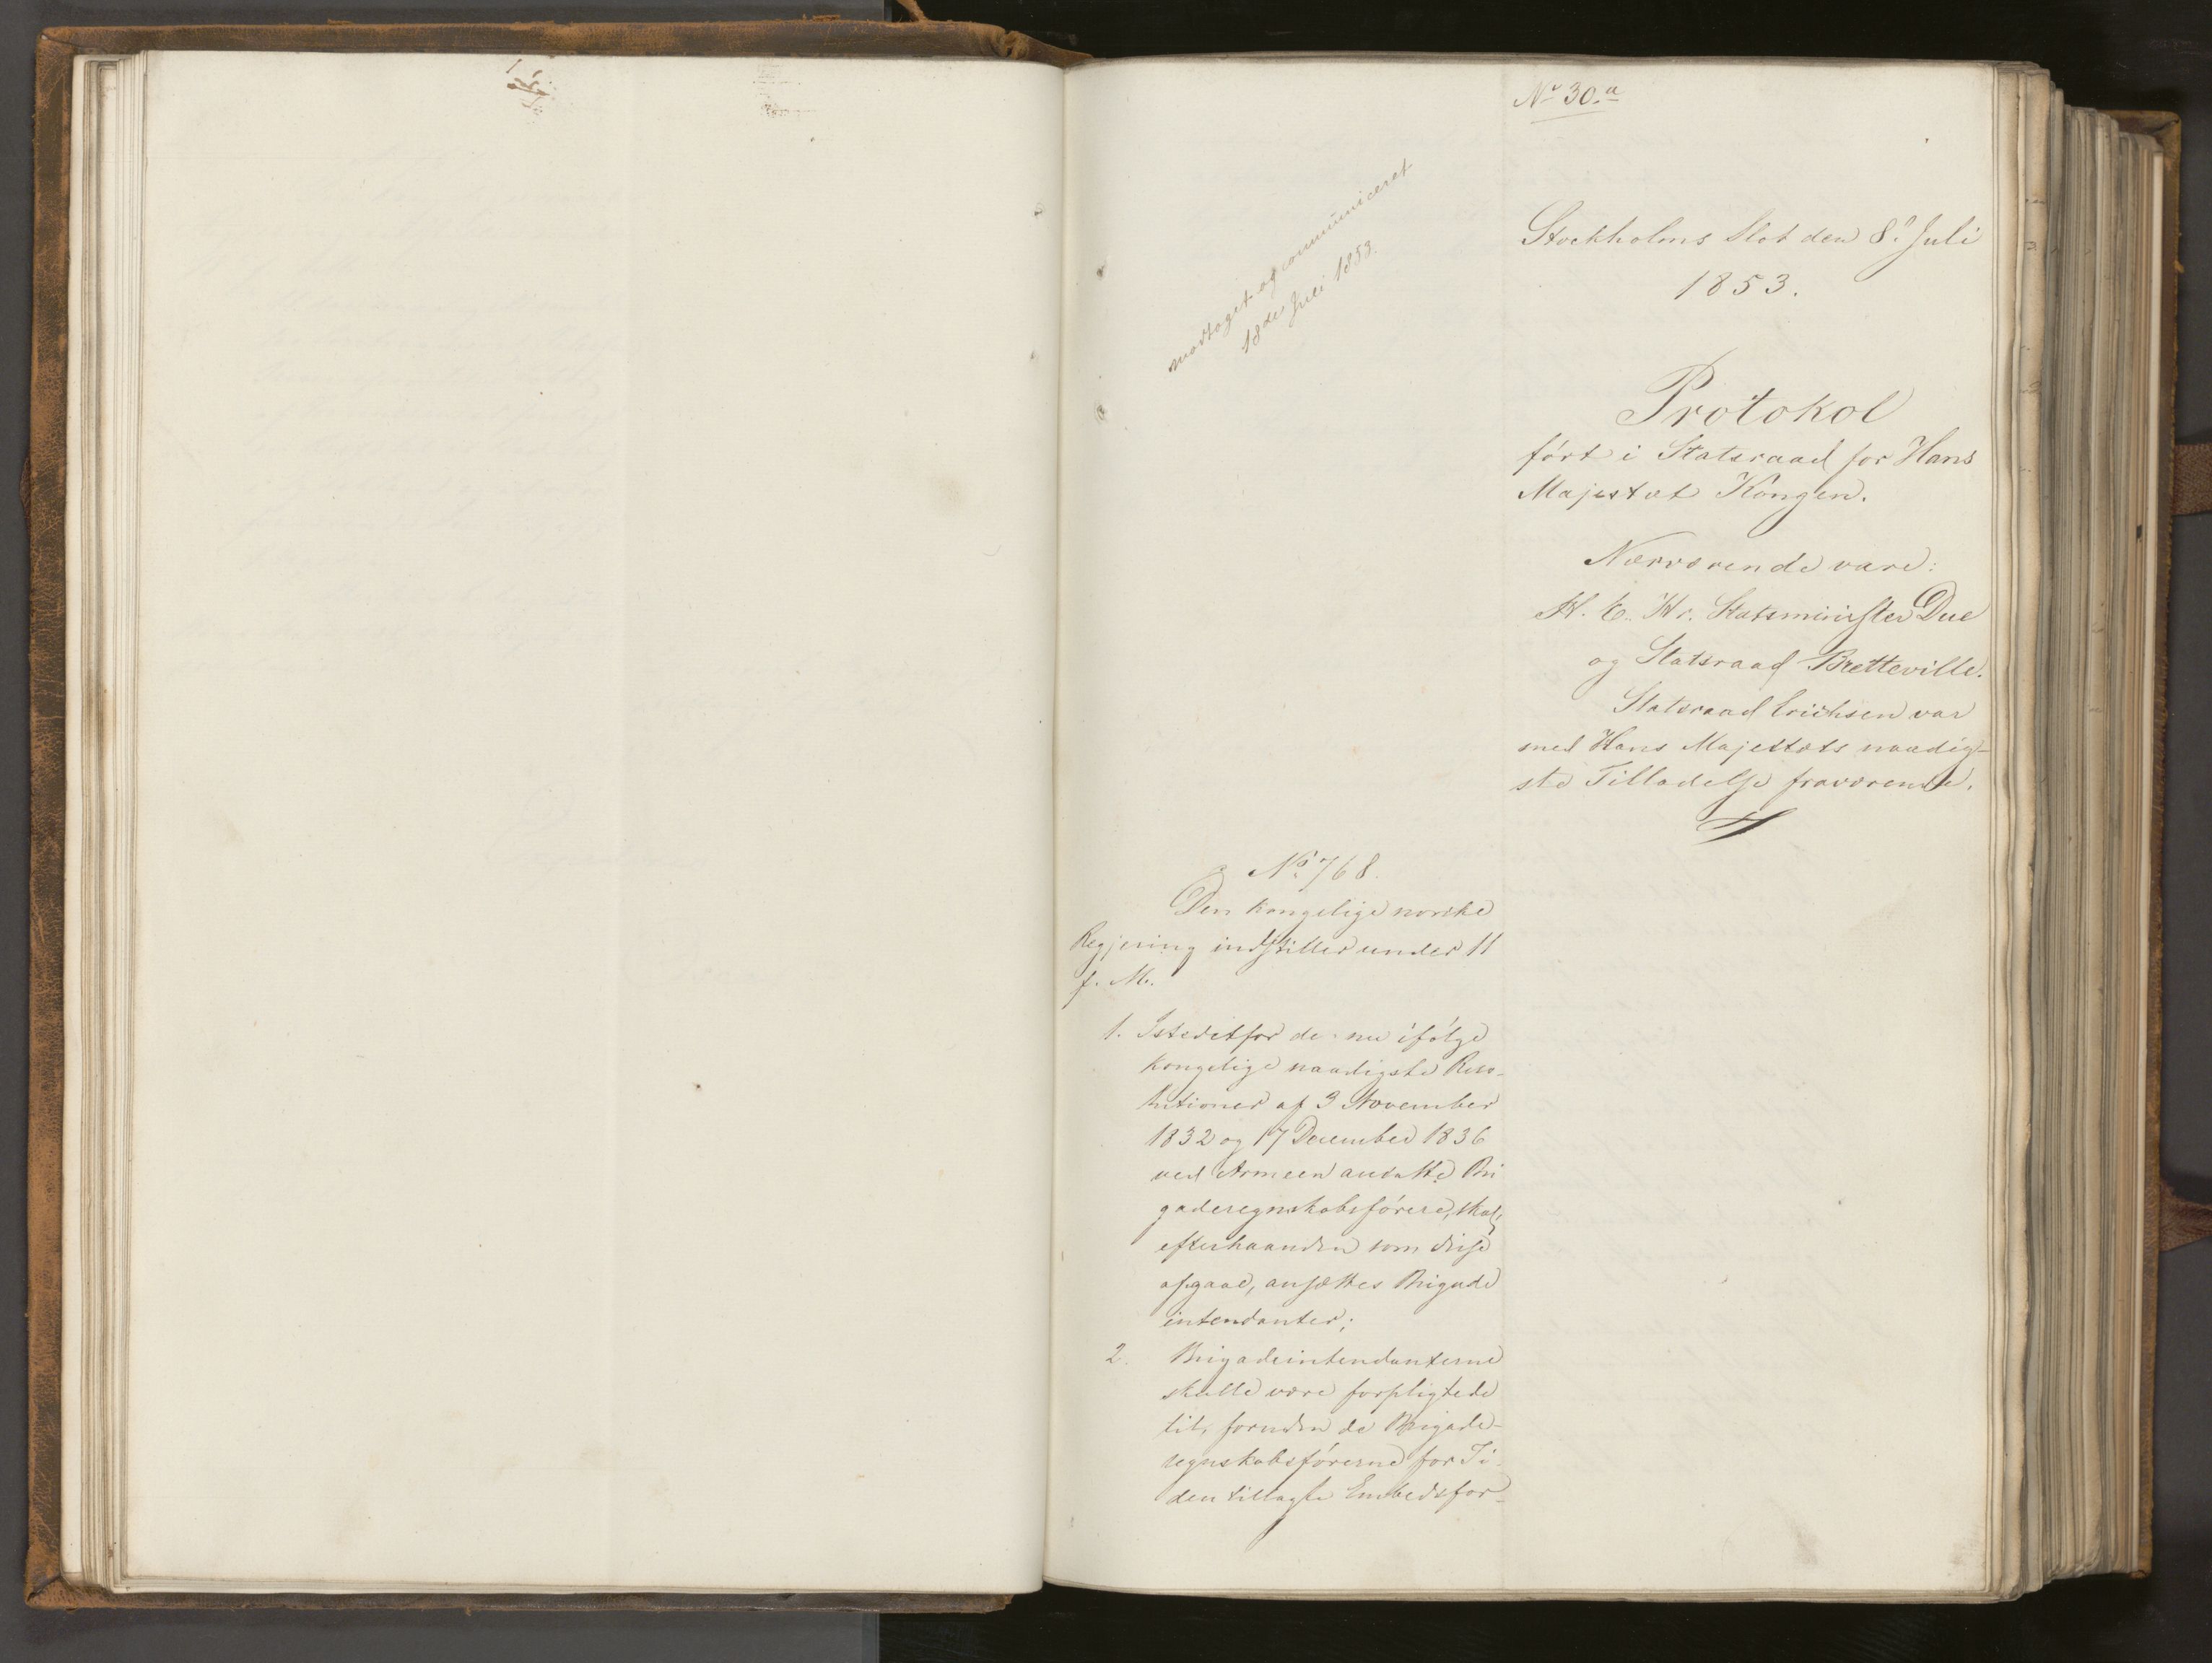 No 30.a
modtaget og communiceret
18de Juli 1853.
Stockholms Slot den 8. Juli
1853.
Protokol
ført i Statsraad for Hans
Majestæt Kongen.
Nærværende vare:
H. E. Hr. Statsminister Due
og Statsraad Bretteville.
Statsraad Erichsen var
med Hans Majestæts naadig-
ste Tilladelse fraværende.
No 768.
Den kongelige norske
Regjering indstiller under 11
f. M.
1. Istedetfor de nu ifølge
kongelige naadigste Reso-
lutioner af 3 November
1832 og 17 December 1836
ved Armeen ansatte Bri
gaderegnskabsførere, skal,
efterhaanden som disse
afgaae, ansættes Brigade
intendanter;
2. Brigadeintendanterne
skulle være forpligtede
til, foruden de Brigade-
regnskabsførerne for Ti-
den tillagte Embedsfor-